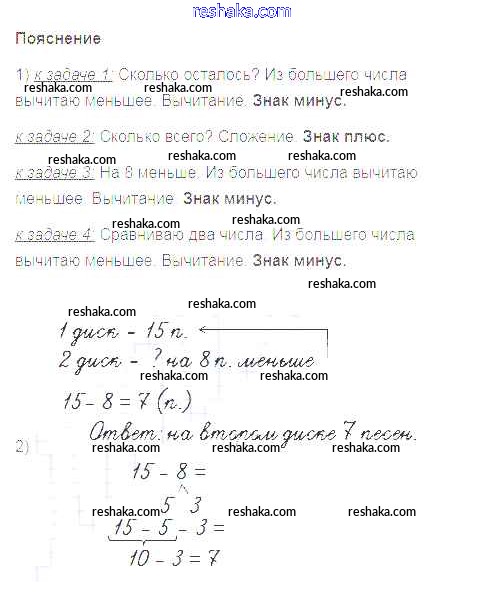 reshaka.com
Пояснение
1) к задаче 1: Сколько осталось? Из большего числа
reshaka.com reshaka.com reshaka.com
вычитаю меньшее. Вычитание. Знак минус.
к задаче 2: Сколько всего? Сложение. Знак плюс.
reshaka.com reshaka.com reshaka.com
к задаче 3: На 8 меньше. Из большего числа вычитаю
меньшее. Вычитание. Знак минус.
reshaka.com reshaka.com
к задаче 4: Сравниваю два числа. Из большего числа
вычитаю меньшее. Вычитание. Знак минус.
reshaka.com
reshaka.com reshaka.com
1 диск - 15 п.
2 диск - ? на 8 п. меньше
reshaka.com reshaka.com
15 - 8 = 7 (п.)
Ответ: на втором диске 7 песен.
2) reshaka.com reshaka.com reshaka.com
15 - 8 =
5 3
reshaka.com reshaka.com reshaka.com
15 - 5 - 3 =
10 - 3 = 7